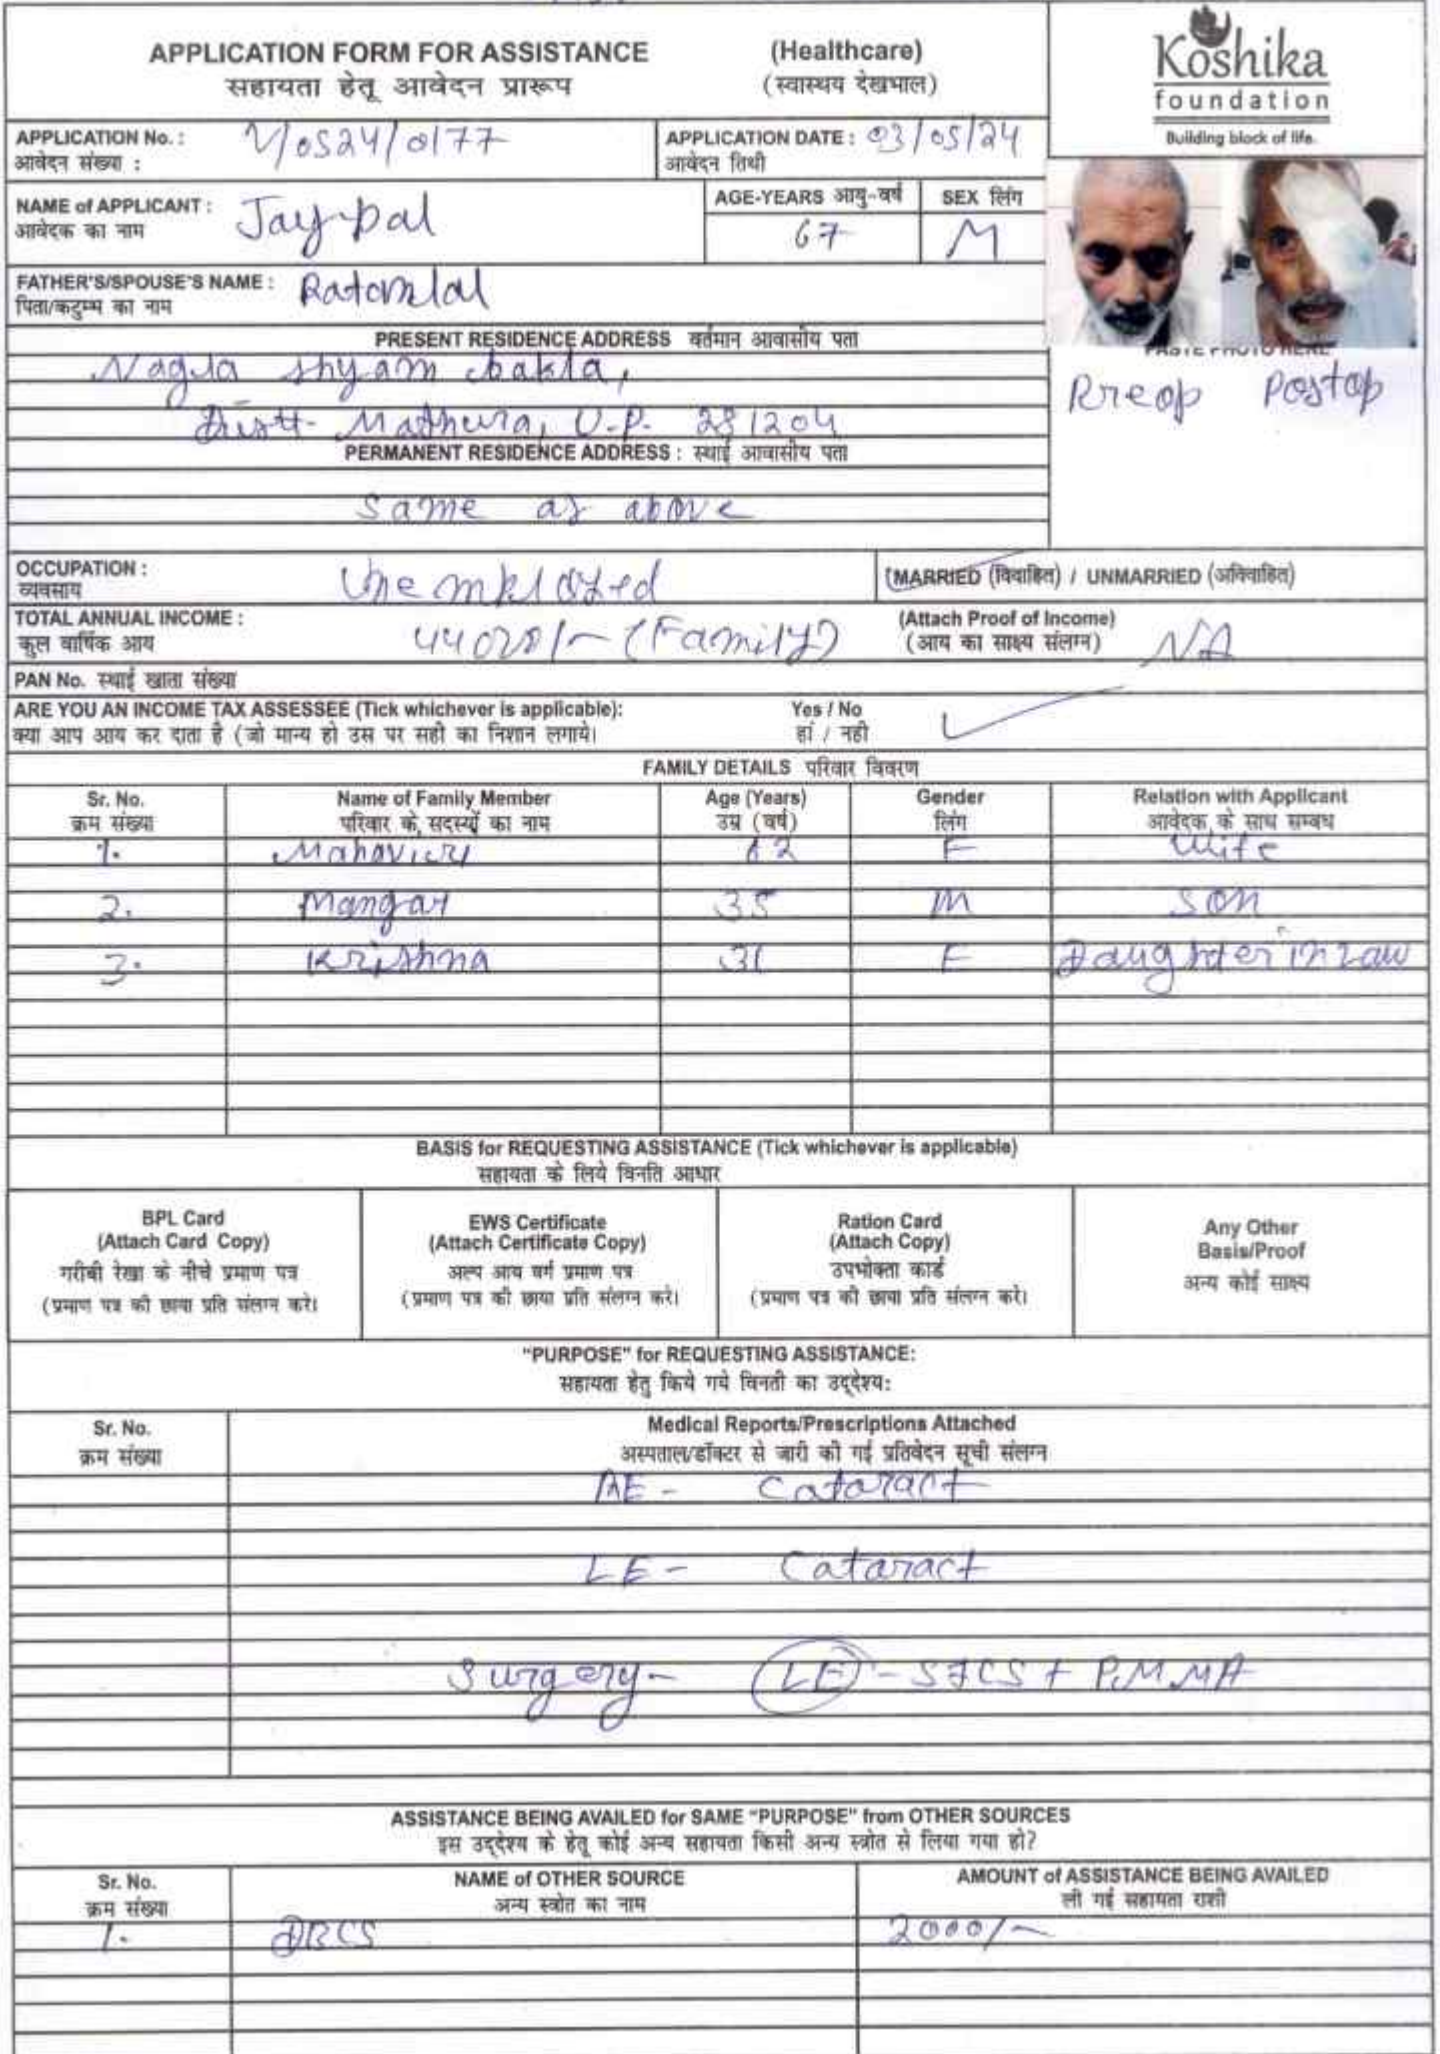 APPLICATION FORM FOR ASSISTANCE (Healthcare)
सहायता हेतू आवेदन प्रारूप (स्वास्थय देखभाल)
Koshika
foundation
Building block of life.
APPLICATION No. : V/0524/0177 APPLICATION DATE : 03/05/24
आवेदन संख्या : आवेदन तिथी
NAME of APPLICANT : Jaypal AGE-YEARS आयु-वर्ष 67 SEX लिंग M
आवेदक का नाम
FATHER'S/SPOUSE'S NAME : Ratanlal
पिता/कटुम्ब का नाम
PASTE PHOTO HERE
Preop Postop
PRESENT RESIDENCE ADDRESS वर्तमान आवासीय पता
Nagla Shyam
Distt- Mathura, U.P. 281204
PERMANENT RESIDENCE ADDRESS : स्थाई आवासीय पता
Same as above
OCCUPATION : Unemployed (MARRIED (विवाहित) / UNMARRIED (अविवाहित)
व्यवसाय
TOTAL ANNUAL INCOME : (Family) (Attach Proof of Income) NA
कुल वार्षिक आय (आय का साक्ष्य संलग्न)
PAN No. स्थाई खाता संख्या
ARE YOU AN INCOME TAX ASSESSEE (Tick whichever is applicable): Yes / No
क्या आप आय कर दाता है (जो मान्य हो उस पर सही का निशान लगाये। हां / नही
FAMILY DETAILS परिवार विवरण
Sr. No. Name of Family Member Age (Years) Gender Relation with Applicant
क्रम संख्या परिवार के सदस्यों का नाम उम्र (वर्ष) लिंग आवेदक के साथ सम्बध
1. 62 F Wife
2. 35 M Son
3. Krishna 31 F Daughter in Law
BASIS for REQUESTING ASSISTANCE (Tick whichever is applicable)
सहायता के लिये विनति आधार
BPL Card
(Attach Card Copy)
गरीबी रेखा के नीचे प्रमाण पत्र
(प्रमाण पत्र की छाया प्रति संलग्न करे।
EWS Certificate
(Attach Certificate Copy)
अल्प आय वर्ग प्रमाण पत्र
(प्रमाण पत्र की छाया प्रति संलग्न करे।
Ration Card
(Attach Copy)
उपभोक्ता कार्ड
(प्रमाण पत्र की छाया प्रति संलग्न करे।
Any Other
Basis/Proof
अन्य कोई साक्ष्य
"PURPOSE" for REQUESTING ASSISTANCE:
सहायता हेतु किये गये विनती का उद्देश्य:
Sr. No. Medical Reports/Prescriptions Attached
क्रम संख्या अस्पताल/डॉक्टर से जारी की गई प्रतिवेदन सूची संलग्न
RE - Cataract
LE - Cataract
Surgery- LE - SICS + PMMA
ASSISTANCE BEING AVAILED for SAME "PURPOSE" from OTHER SOURCES
इस उद्देश्य के हेतू कोई अन्य सहायता किसी अन्य स्त्रोत से लिया गया हो?
Sr. No. NAME of OTHER SOURCE AMOUNT of ASSISTANCE BEING AVAILED
क्रम संख्या अन्य स्त्रोत का नाम ली गई सहायता राशी
1. DBCS 2000/-